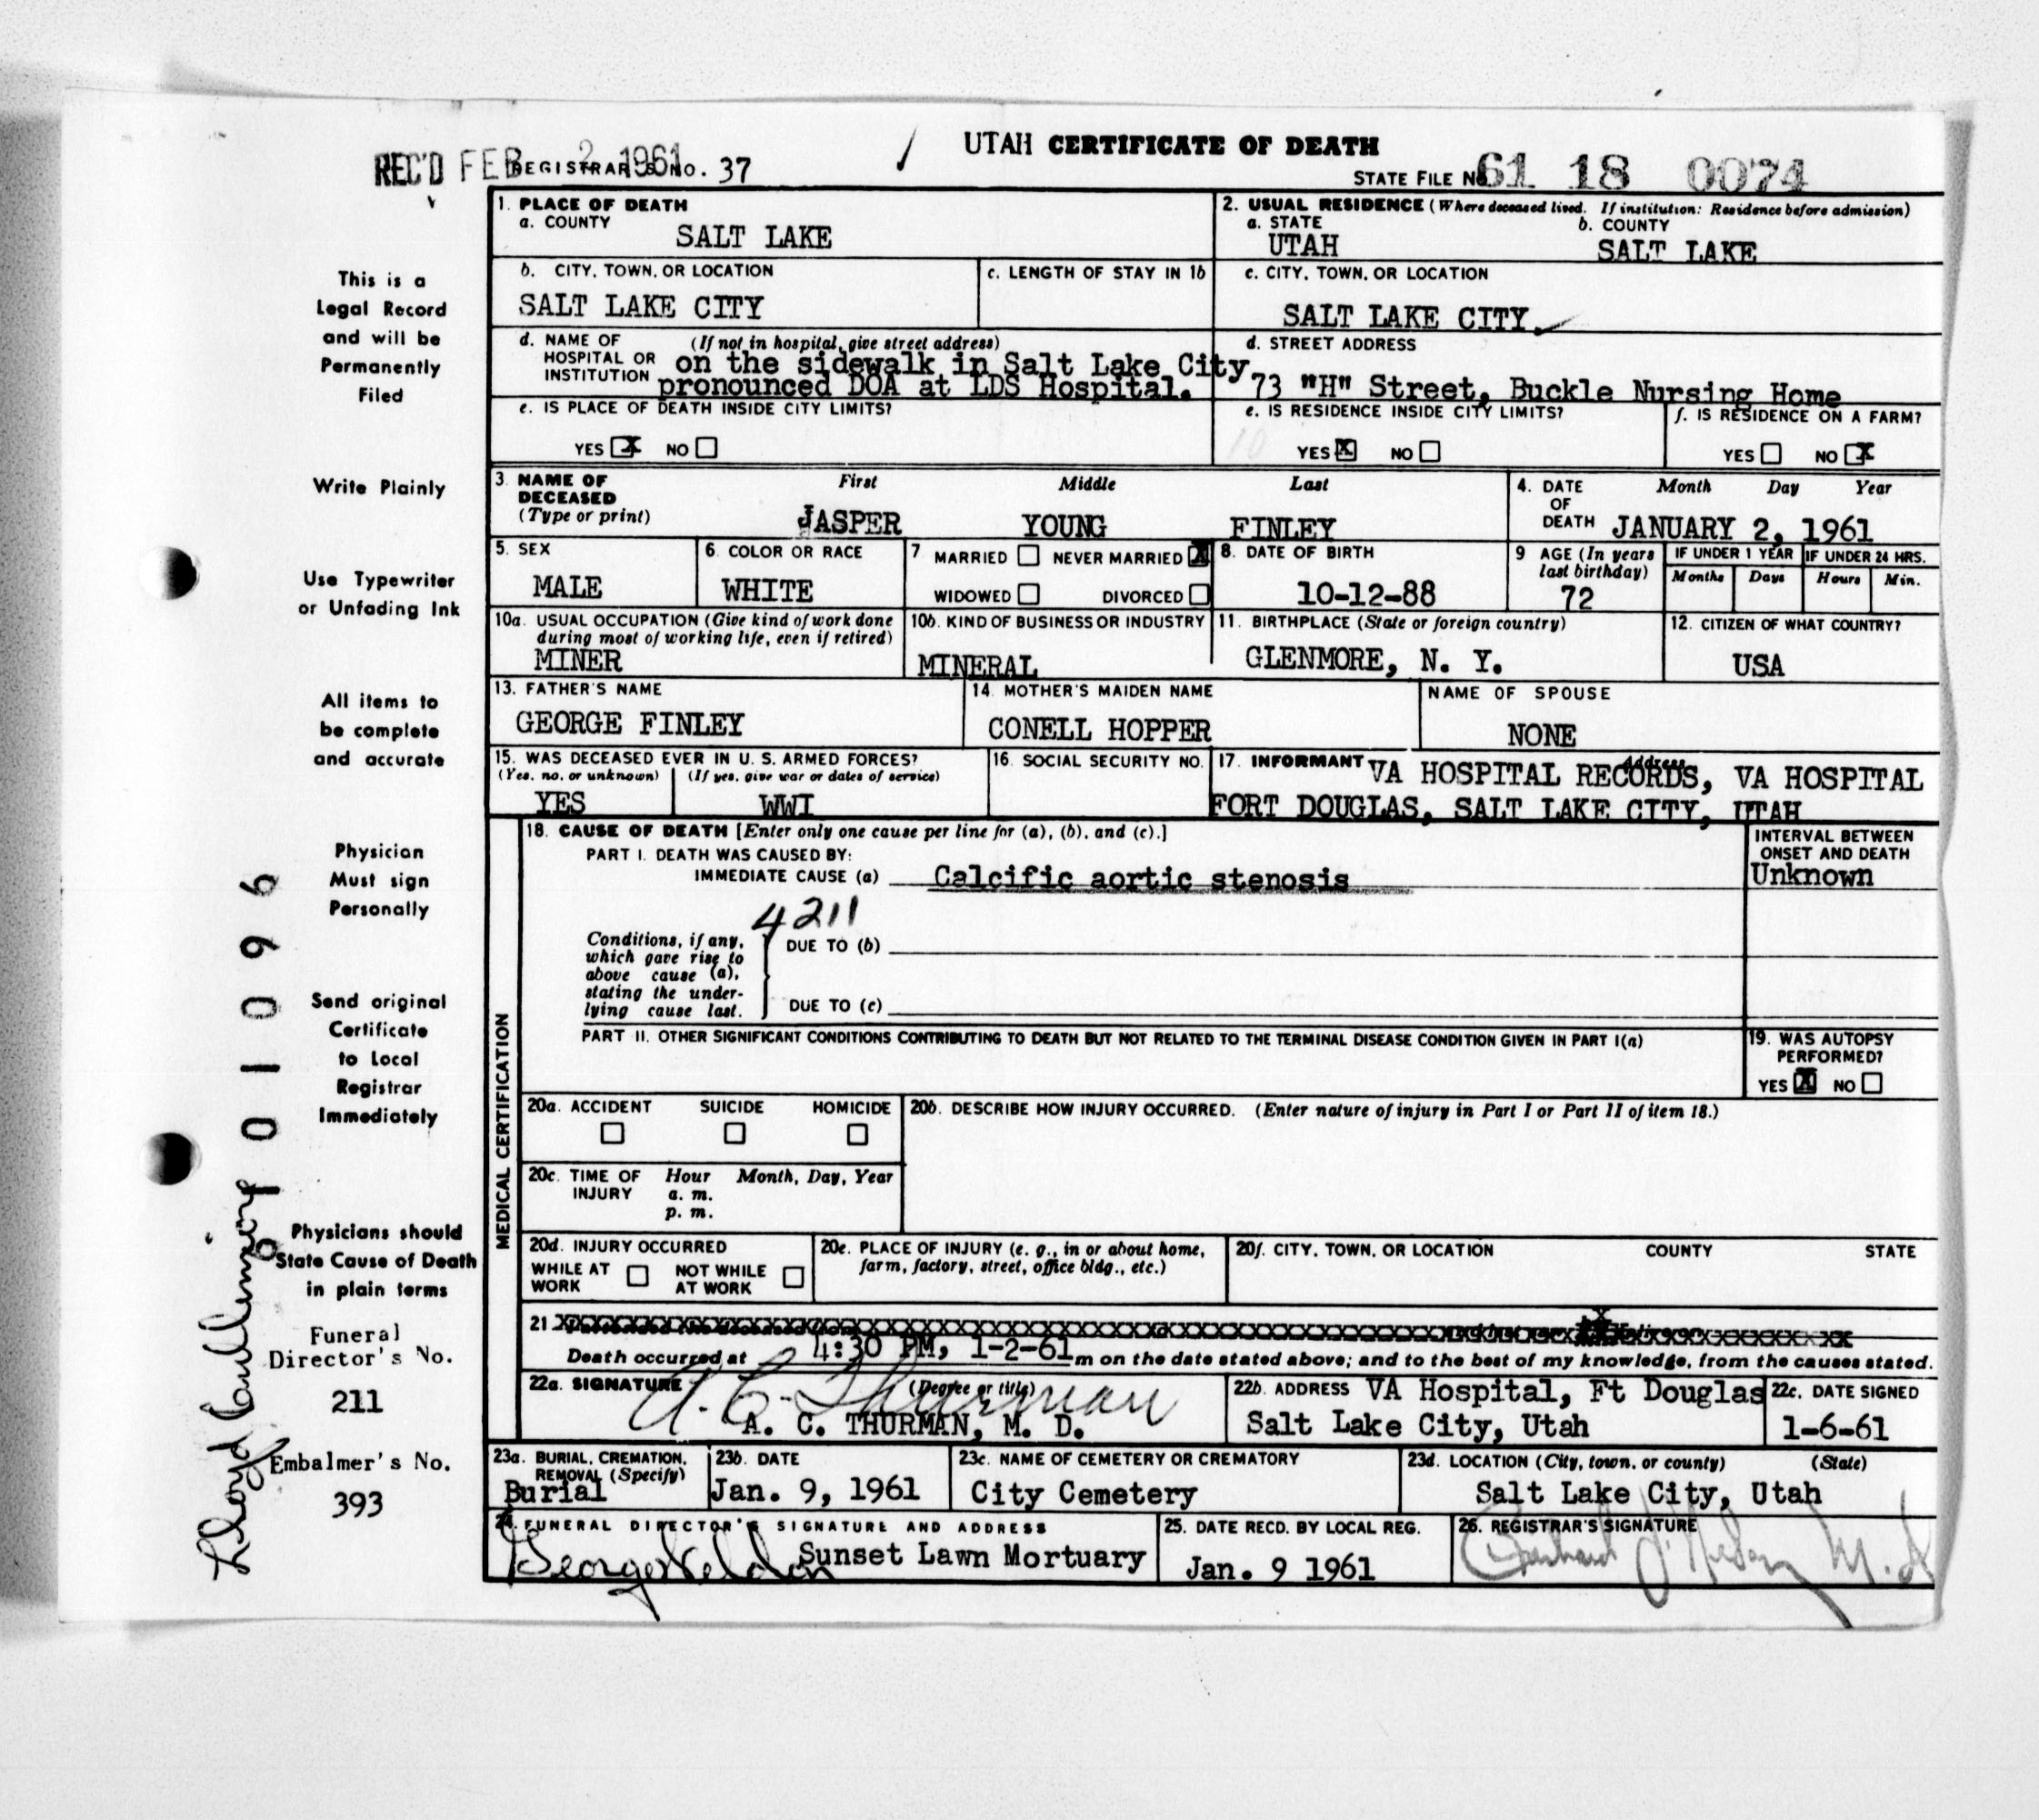 UTAH CERTIFICATE OF DEATH
REC'D FEB 2 1961
REGISTRAR'S No. 37
STATE FILE No. 61 18 0074
1. PLACE OF DEATH
a. COUNTY
SALT LAKE
2. USUAL RESIDENCE (Where deceased lived. If institution: Residence before admission)
a. STATE b. COUNTY
UTAH SALT LAKE
b. CITY, TOWN, OR LOCATION
SALT LAKE CITY
c. LENGTH OF STAY IN 1b
c. CITY, TOWN, OR LOCATION
SALT LAKE CITY
d. NAME OF HOSPITAL OR INSTITUTION (If not in hospital, give street address)
on the sidewalk in Salt Lake City
pronounced DOA at LDS Hospital.
d. STREET ADDRESS
73 "H" Street, Buckle Nursing Home
e. IS PLACE OF DEATH INSIDE CITY LIMITS?
YES X NO
e. IS RESIDENCE INSIDE CITY LIMITS?
YES X NO
f. IS RESIDENCE ON A FARM?
YES NO X
3. NAME OF DECEASED (Type or print)
First Middle Last
JASPER YOUNG FINLEY
4. DATE OF DEATH Month Day Year
JANUARY 2, 1961
5. SEX
MALE
6. COLOR OR RACE
WHITE
7 MARRIED NEVER MARRIED X
WIDOWED DIVORCED
8. DATE OF BIRTH
10-12-88
9 AGE (In years last birthday)
72
IF UNDER 1 YEAR IF UNDER 24 HRS.
Months Days Hours Min.
10a. USUAL OCCUPATION (Give kind of work done during most of working life, even if retired)
MINER
10b. KIND OF BUSINESS OR INDUSTRY
MINERAL
11. BIRTHPLACE (State or foreign country)
GLENMORE, N. Y.
12. CITIZEN OF WHAT COUNTRY?
USA
13. FATHER'S NAME
GEORGE FINLEY
14. MOTHER'S MAIDEN NAME
CONELL HOPPER
NAME OF SPOUSE
NONE
15. WAS DECEASED EVER IN U. S. ARMED FORCES?
(Yes, no, or unknown) (If yes, give war or dates of service)
YES WWI
16. SOCIAL SECURITY NO.
17. INFORMANT Address
VA HOSPITAL RECORDS, VA HOSPITAL
FORT DOUGLAS, SALT LAKE CITY, UTAH
MEDICAL CERTIFICATION
18. CAUSE OF DEATH [Enter only one cause per line for (a), (b), and (c).]
PART I. DEATH WAS CAUSED BY:
IMMEDIATE CAUSE (a) Calcific aortic stenosis
INTERVAL BETWEEN ONSET AND DEATH
Unknown
4211
Conditions, if any, which gave rise to above cause (a), stating the underlying cause last.
DUE TO (b)
DUE TO (c)
PART II. OTHER SIGNIFICANT CONDITIONS CONTRIBUTING TO DEATH BUT NOT RELATED TO THE TERMINAL DISEASE CONDITION GIVEN IN PART I(a)
19. WAS AUTOPSY PERFORMED?
YES X NO
20a. ACCIDENT SUICIDE HOMICIDE
20b. DESCRIBE HOW INJURY OCCURRED. (Enter nature of injury in Part I or Part II of item 18.)
20c. TIME OF INJURY Hour Month, Day, Year
a. m.
p. m.
20d. INJURY OCCURRED
WHILE AT WORK NOT WHILE AT WORK
20e. PLACE OF INJURY (e. g., in or about home, farm, factory, street, office bldg., etc.)
20f. CITY, TOWN, OR LOCATION COUNTY STATE
21
Death occurred at 4:30 PM, 1-2-61 m on the date stated above; and to the best of my knowledge, from the causes stated.
22a. SIGNATURE (Degree or title)
A. C. Thurman
A. C. THURMAN, M. D.
22b. ADDRESS VA Hospital, Ft Douglas
Salt Lake City, Utah
22c. DATE SIGNED
1-6-61
23a. BURIAL, CREMATION, REMOVAL (Specify)
Burial
23b. DATE
Jan. 9, 1961
23c. NAME OF CEMETERY OR CREMATORY
City Cemetery
23d. LOCATION (City, town, or county) (State)
Salt Lake City, Utah
24. FUNERAL DIRECTOR'S SIGNATURE AND ADDRESS
George Weldon
Sunset Lawn Mortuary
25. DATE RECD. BY LOCAL REG.
Jan. 9 1961
26. REGISTRAR'S SIGNATURE
M. D
This is a
Legal Record
and will be
Permanently
Filed
Write Plainly
Use Typewriter
or Unfading Ink
All items to
be complete
and accurate
Physician
Must sign
Personally
Send original
Certificate
to Local
Registrar
Immediately
Physicians should
State Cause of Death
in plain terms
Funeral
Director's No.
211
Embalmer's No.
393
Lloyd
101096